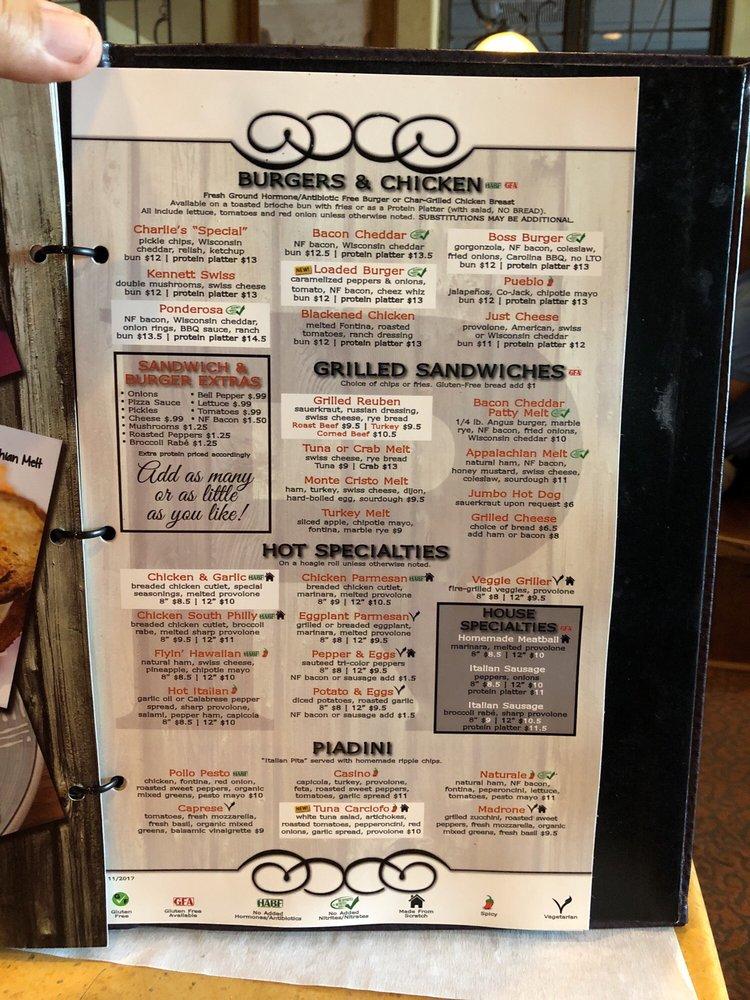 BURGERS & CHICKEN HABF GFA
Fresh Ground Hormone/Antibiotic Free Burger or Char-Grilled Chicken Breast
Available on a toasted brioche bun with fries or as a Protein Platter (with salad, NO BREAD).
All include lettuce, tomatoes and red onion unless otherwise noted. SUBSTITUTIONS MAY BE ADDITIONAL.
Charlie's "Special"
pickle chips, Wisconsin
cheddar, relish, ketchup
bun $12 | protein platter $13
Kennett Swiss
double mushrooms, swiss cheese
bun $12 | protein platter $13
Ponderosa
NF bacon, Wisconsin cheddar,
onion rings, BBQ sauce, ranch
bun $13.5 | protein platter $14.5
Bacon Cheddar
NF bacon, Wisconsin cheddar
bun $12.5 | protein platter $13.5
NEW! Loaded Burger
caramelized peppers & onions,
tomato, NF bacon, cheez whiz
bun $12 | protein platter $13
Blackened Chicken
melted Fontina, roasted
tomatoes, ranch dressing
bun $12 | protein platter $13
Boss Burger
gorgonzola, NF bacon, coleslaw,
fried onions, Carolina BBQ, no LTO
bun $12 | protein platter $13
Pueblo
jalapeños, Co-Jack, chipotle mayo
bun $12 | protein platter $13
Just Cheese
provolone, American, swiss
or Wisconsin cheddar
bun $11 | protein platter $12
SANDWICH &
BURGER EXTRAS
• Onions
• Pizza Sauce
• Pickles
• Cheese $.99
• Mushrooms $1.25
• Roasted Peppers $1.25
• Broccoli Rabé $1.25
• Bell Pepper $.99
• Lettuce $.99
• Tomatoes $.99
• NF Bacon $1.50
Extra protein priced accordingly
Add as many
or as little
as you like!
GRILLED SANDWICHES GFA
Choice of chips or fries. Gluten-Free bread add $1
Grilled Reuben
sauerkraut, russian dressing,
swiss cheese, rye bread
Roast Beef $9.5 | Turkey $9.5
Corned Beef $10.5
Tuna or Crab Melt
swiss cheese, rye bread
Tuna $9 | Crab $13
Monte Cristo Melt
ham, turkey, swiss cheese, dijon,
hard-boiled egg, sourdough $9.5
Turkey Melt
sliced apple, chipotle mayo,
fontina, marble rye $9
Bacon Cheddar
Patty Melt
1/4 lb. Angus burger, marble
rye, NF bacon, fried onions,
Wisconsin cheddar $10
Appalachian Melt
natural ham, NF bacon,
honey mustard, swiss cheese,
coleslaw, sourdough $11
Jumbo Hot Dog
sauerkraut upon request $6
Grilled Cheese
choice of bread $6.5
add ham or bacon $8
HOT SPECIALTIES
On a hoagie roll unless otherwise noted.
Chicken & Garlic HABF
breaded chicken cutlet, special
seasonings, melted provolone
8" $8.5 | 12" $10
Chicken South Philly HABF
breaded chicken cutlet, broccoli
rabe, melted sharp provolone
8" $9.5 | 12" $11
Flyin' Hawaiian HABF
natural ham, swiss cheese,
pineapple, chipotle mayo
8" $8.5 | 12" $10
Hot Italian
garlic oil or Calabrese pepper
spread, sharp provolone,
salami, pepper ham, capicola
8" $8.5 | 12" $10
Chicken Parmesan HABF
breaded chicken cutlet,
marinara, melted provolone
8" $9 | 12" $10.5
Eggplant Parmesan
grilled or breaded eggplant,
marinara, melted provolone
8" $8 | 12" $9.5
Pepper & Eggs
sauteed tri-color peppers
8" $8 | 12" $9.5
NF bacon or sausage add $1.5
Potato & Eggs
diced potatoes, roasted garlic
8" $8 | 12" $9.5
NF bacon or sausage add $1.5
Veggie Griller
fire-grilled veggies, provolone
8" $8 | 12" $9.5
HOUSE
SPECIALTIES GFA
Homemade Meatball
marinara, melted provolone
8" $8.5 | 12" $10
Italian Sausage
peppers, onions
8" $8.5 | 12" $10
protein platter $11
Italian Sausage
broccoli rabé, sharp provolone
8" $9 | 12" $10.5
protein platter $11.5
PIADINI
"Italian Pita" served with homemade ripple chips.
Pollo Pesto HABF
chicken, fontina, red onion,
roasted sweet peppers, organic
mixed greens, pesto mayo $10
Caprese
tomatoes, fresh mozzarella,
fresh basil, organic mixed
greens, balsamic vinaigrette $9
Casino
capicola, turkey, provolone,
feta, roasted sweet peppers,
tomatoes, garlic spread $11
NEW! Tuna Carciofo
white tuna salad, artichokes,
roasted tomatoes, pepperoncini, red
onions, garlic spread, provolone $10
Naturale
natural ham, NF bacon,
fontina, peperoncini, lettuce,
tomatoes, pesto mayo $11
Madrone
grilled zucchini, roasted sweet
peppers, fresh mozzarella, organic
mixed greens, fresh basil $9.5
11/2017
Gluten
Free
GFA
Gluten Free
Available
HABF
No Added
Hormones/Antibiotics
No Added
Nitrites/Nitrates
Made From
Scratch
Spicy
Vegetarian
Melt